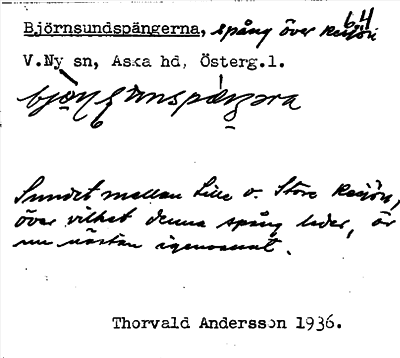 64
Björnsundspängerna, spång över Kesjön
V.Ny sn, Aska hd, Österg.l.
Sundet mellan Lilla o. Stora Kesjön,
över vilket denna spång leder, är
nu nästan igenvuxet.
Thorvald Andersson 1936.